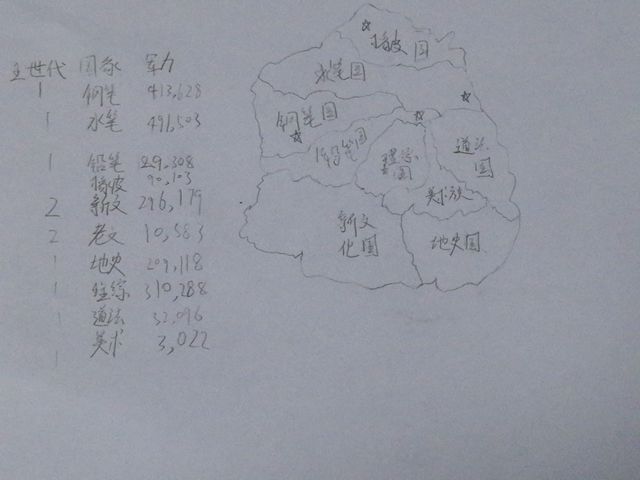 王世代 国家 军力
1 钢笔 413,628
1 水笔 496,503
1 铅笔 29,308
橡皮 90,103
2 新文 296,179
2 老文 10,583
1 地史 209,118
1 理综 310,288
1 道法 32,096
1 美术 3,022
橡皮国
水笔国
钢笔国
铅笔国
理综国
道法国
美术族
新文化国
地史国